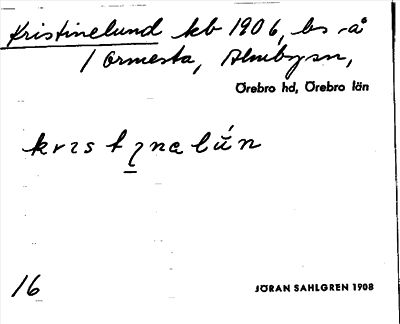 Kristinelund kb 1906, bs -å
/ Ormesta, Almbysn,
Örebro hd, Örebro län
krɪstɪnelún
16
JÖRAN SAHLGREN 1908